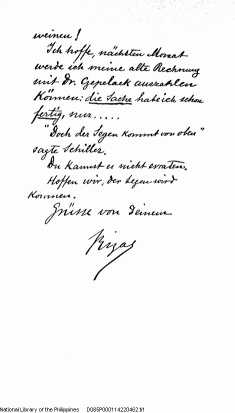 weinen!
Ich hoffe, nächsten Monat
werde ich meine alte Rechnung
mit Dr. Gepelack auszahlen
können; die Sache habe ich schon
fertig, nur.....
"Doch der Segen kommt von oben"
sagte Schiller.
Du kannst es nicht erraten.
Hoffen wir, der Segen wird
kommen.
Grüsse von Deinem
Rizal
National Library of the Philippines D085P00011422046